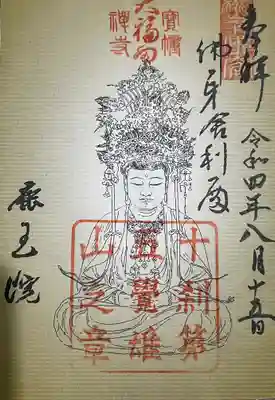 奉拝
令和四年八月十五日
佛牙舎利殿
寶幢
大福田
禪寺
十刹第
五覺雄
山之章
鹿王院